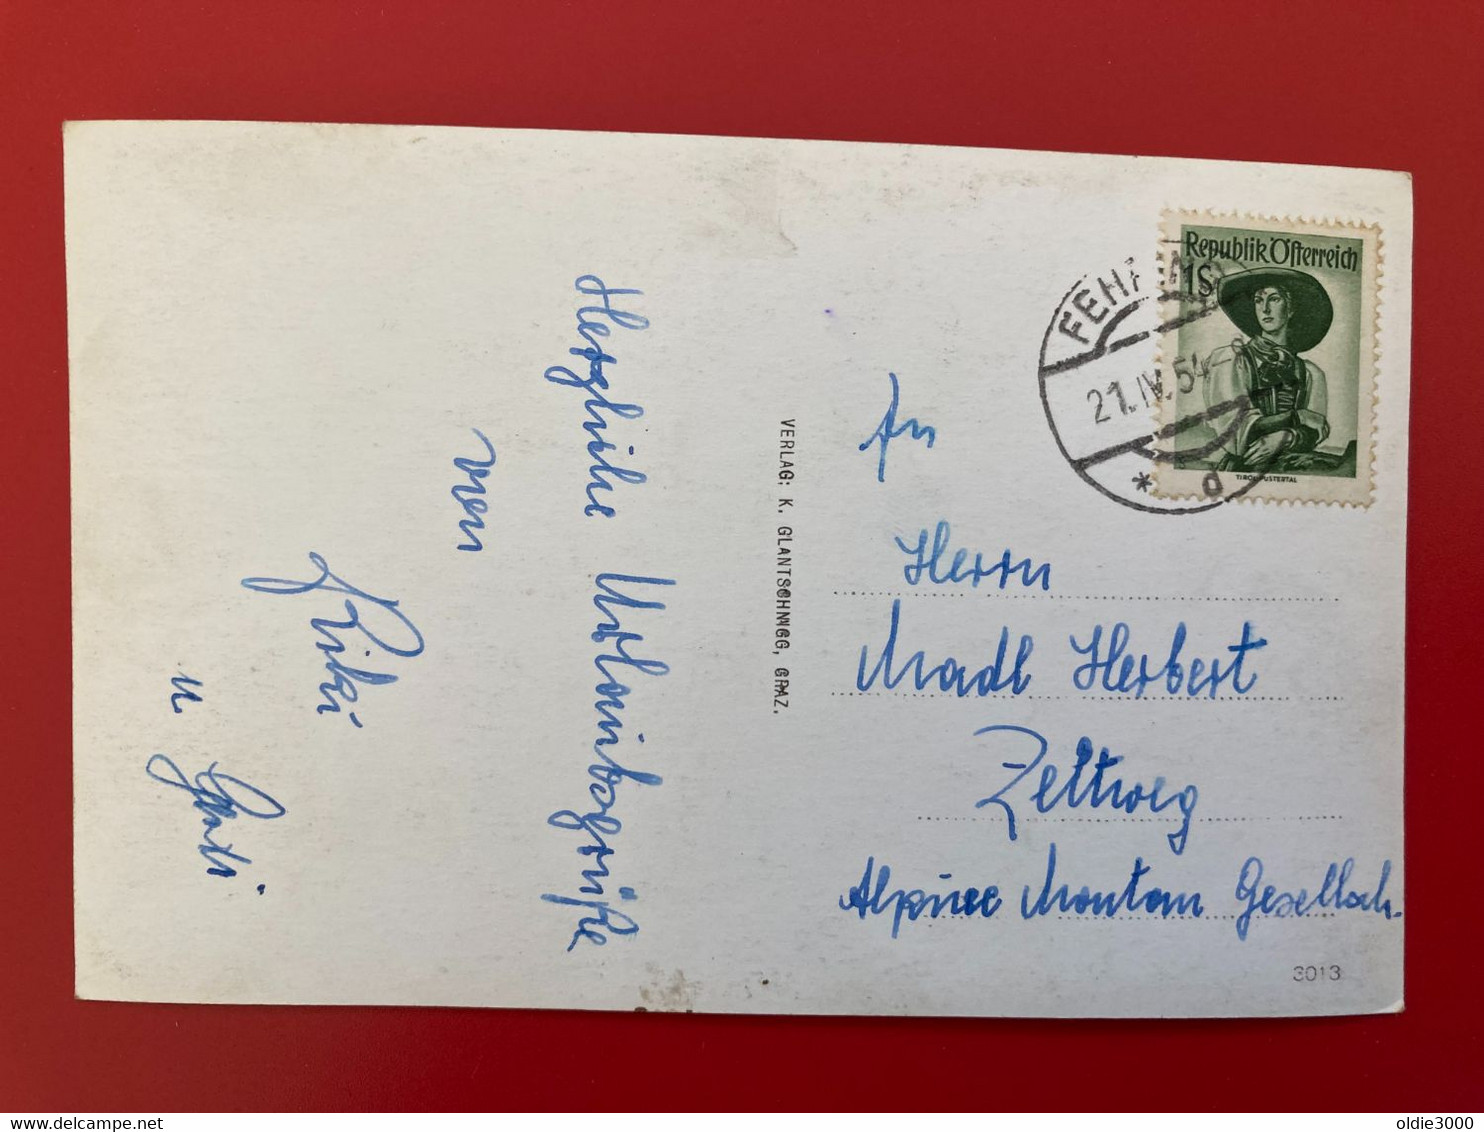 Herzliche Urlaubsgrüße
von
Riki
u Gerdi
VERLAG: K. GLANTSCHNIGG, GRAZ.
Republik Österreich
1S
TIROL PUSTERTAL
FEHRING
21.IV.54
* d
An
Herrn
Madl Herbert
Zeltweg
Alpine Montan Gesellsch.
3013
oldie3000